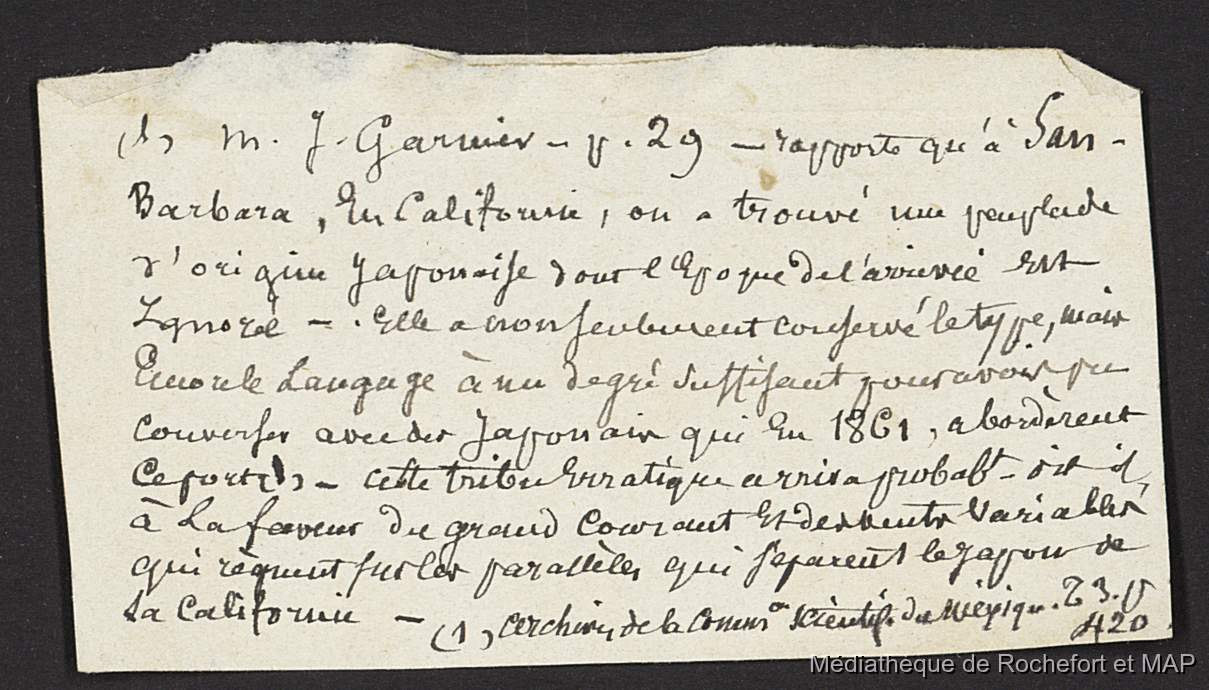 (1) M. J. Garnier - p. 29 - rapporte qu'à San-
Barbara, En Californie, on a trouvé une peuplade
d'origine Japonaise dont l'Epoque de l'arrivée Est
Ignorée - . Elle a non seulement conservé le type, mais
Encore le Langage à un degré suffisant pour avoir pu
converser avec des Japonais qui En 1861, abordèrent
ce port (1) - cette tribu Erratique arriva probabt - dit il,
à La faveur du grand Courant Et des vents Variables
qui règnent sur les parallèles qui séparent le Japon de
La Californie - (1) Archives de la Common scientif. du Méxique. T 3. p
420
Médiathèque de Rochefort et MAP